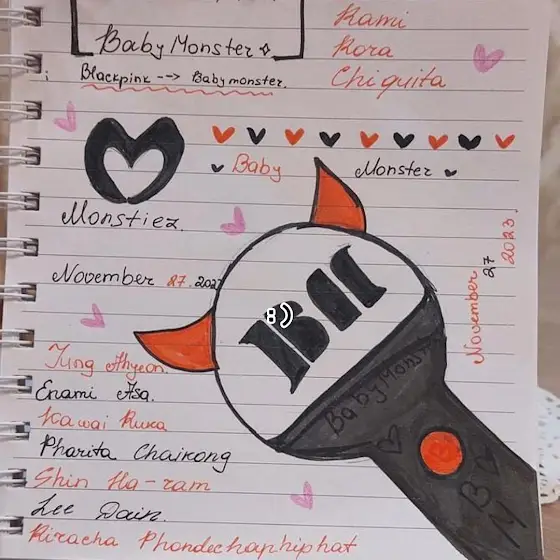 Rami
Baby Monster
Rora
Chiquita
Blackpink --> Babymonster.
Baby Monster
Monstiez.
November 27. 2023
November 27 2023.
BII
8)
Jung Ahyeon.
Enami Asa.
Kawai Ruka
Pharita Chaikong
Shin Ha-ram
Lee Dain.
Riracha Phondechaphiphat
BabyMonster
B
BM